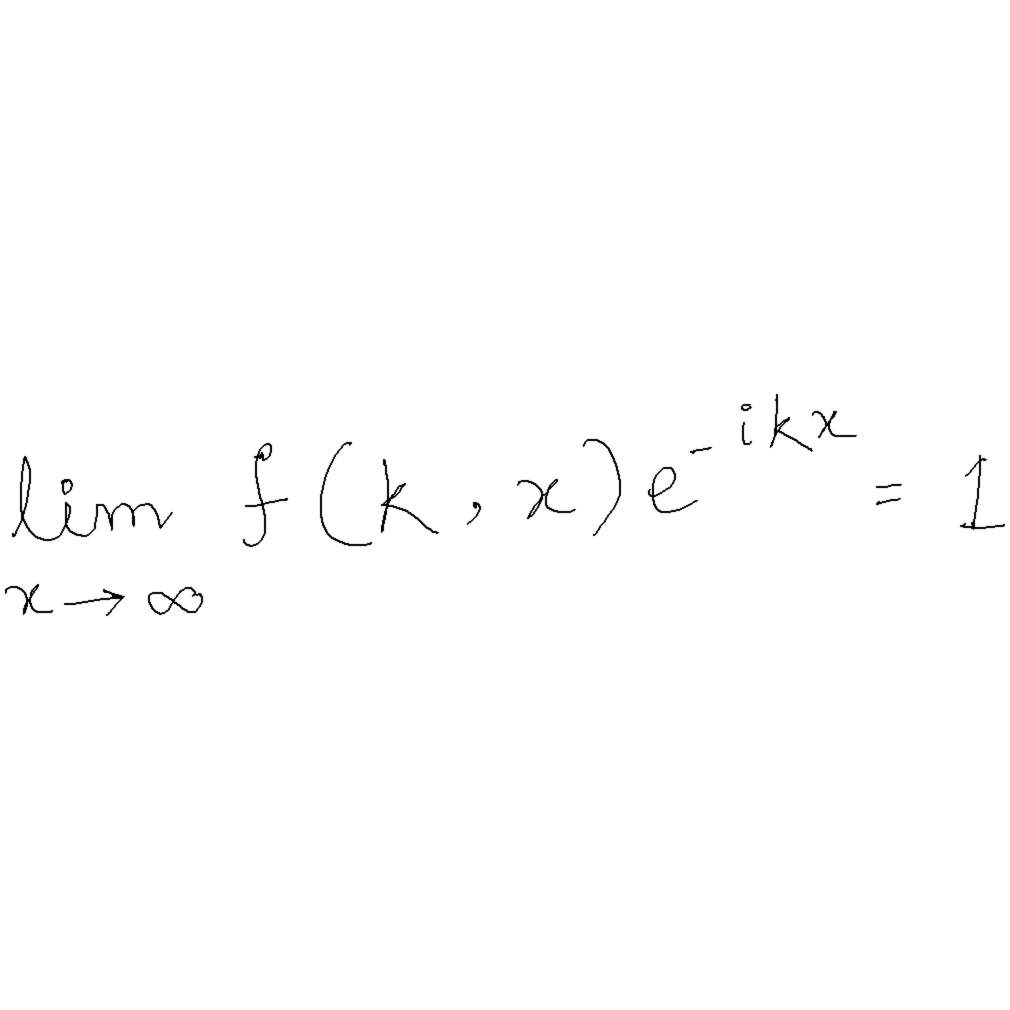 lim f(k, x)e^{-ikx} = 1
x → ∞